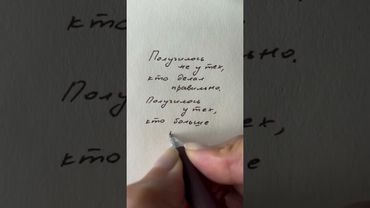 Получилось
не у тех,
кто делал
правильно.
Получилось
у тех,
кто больше